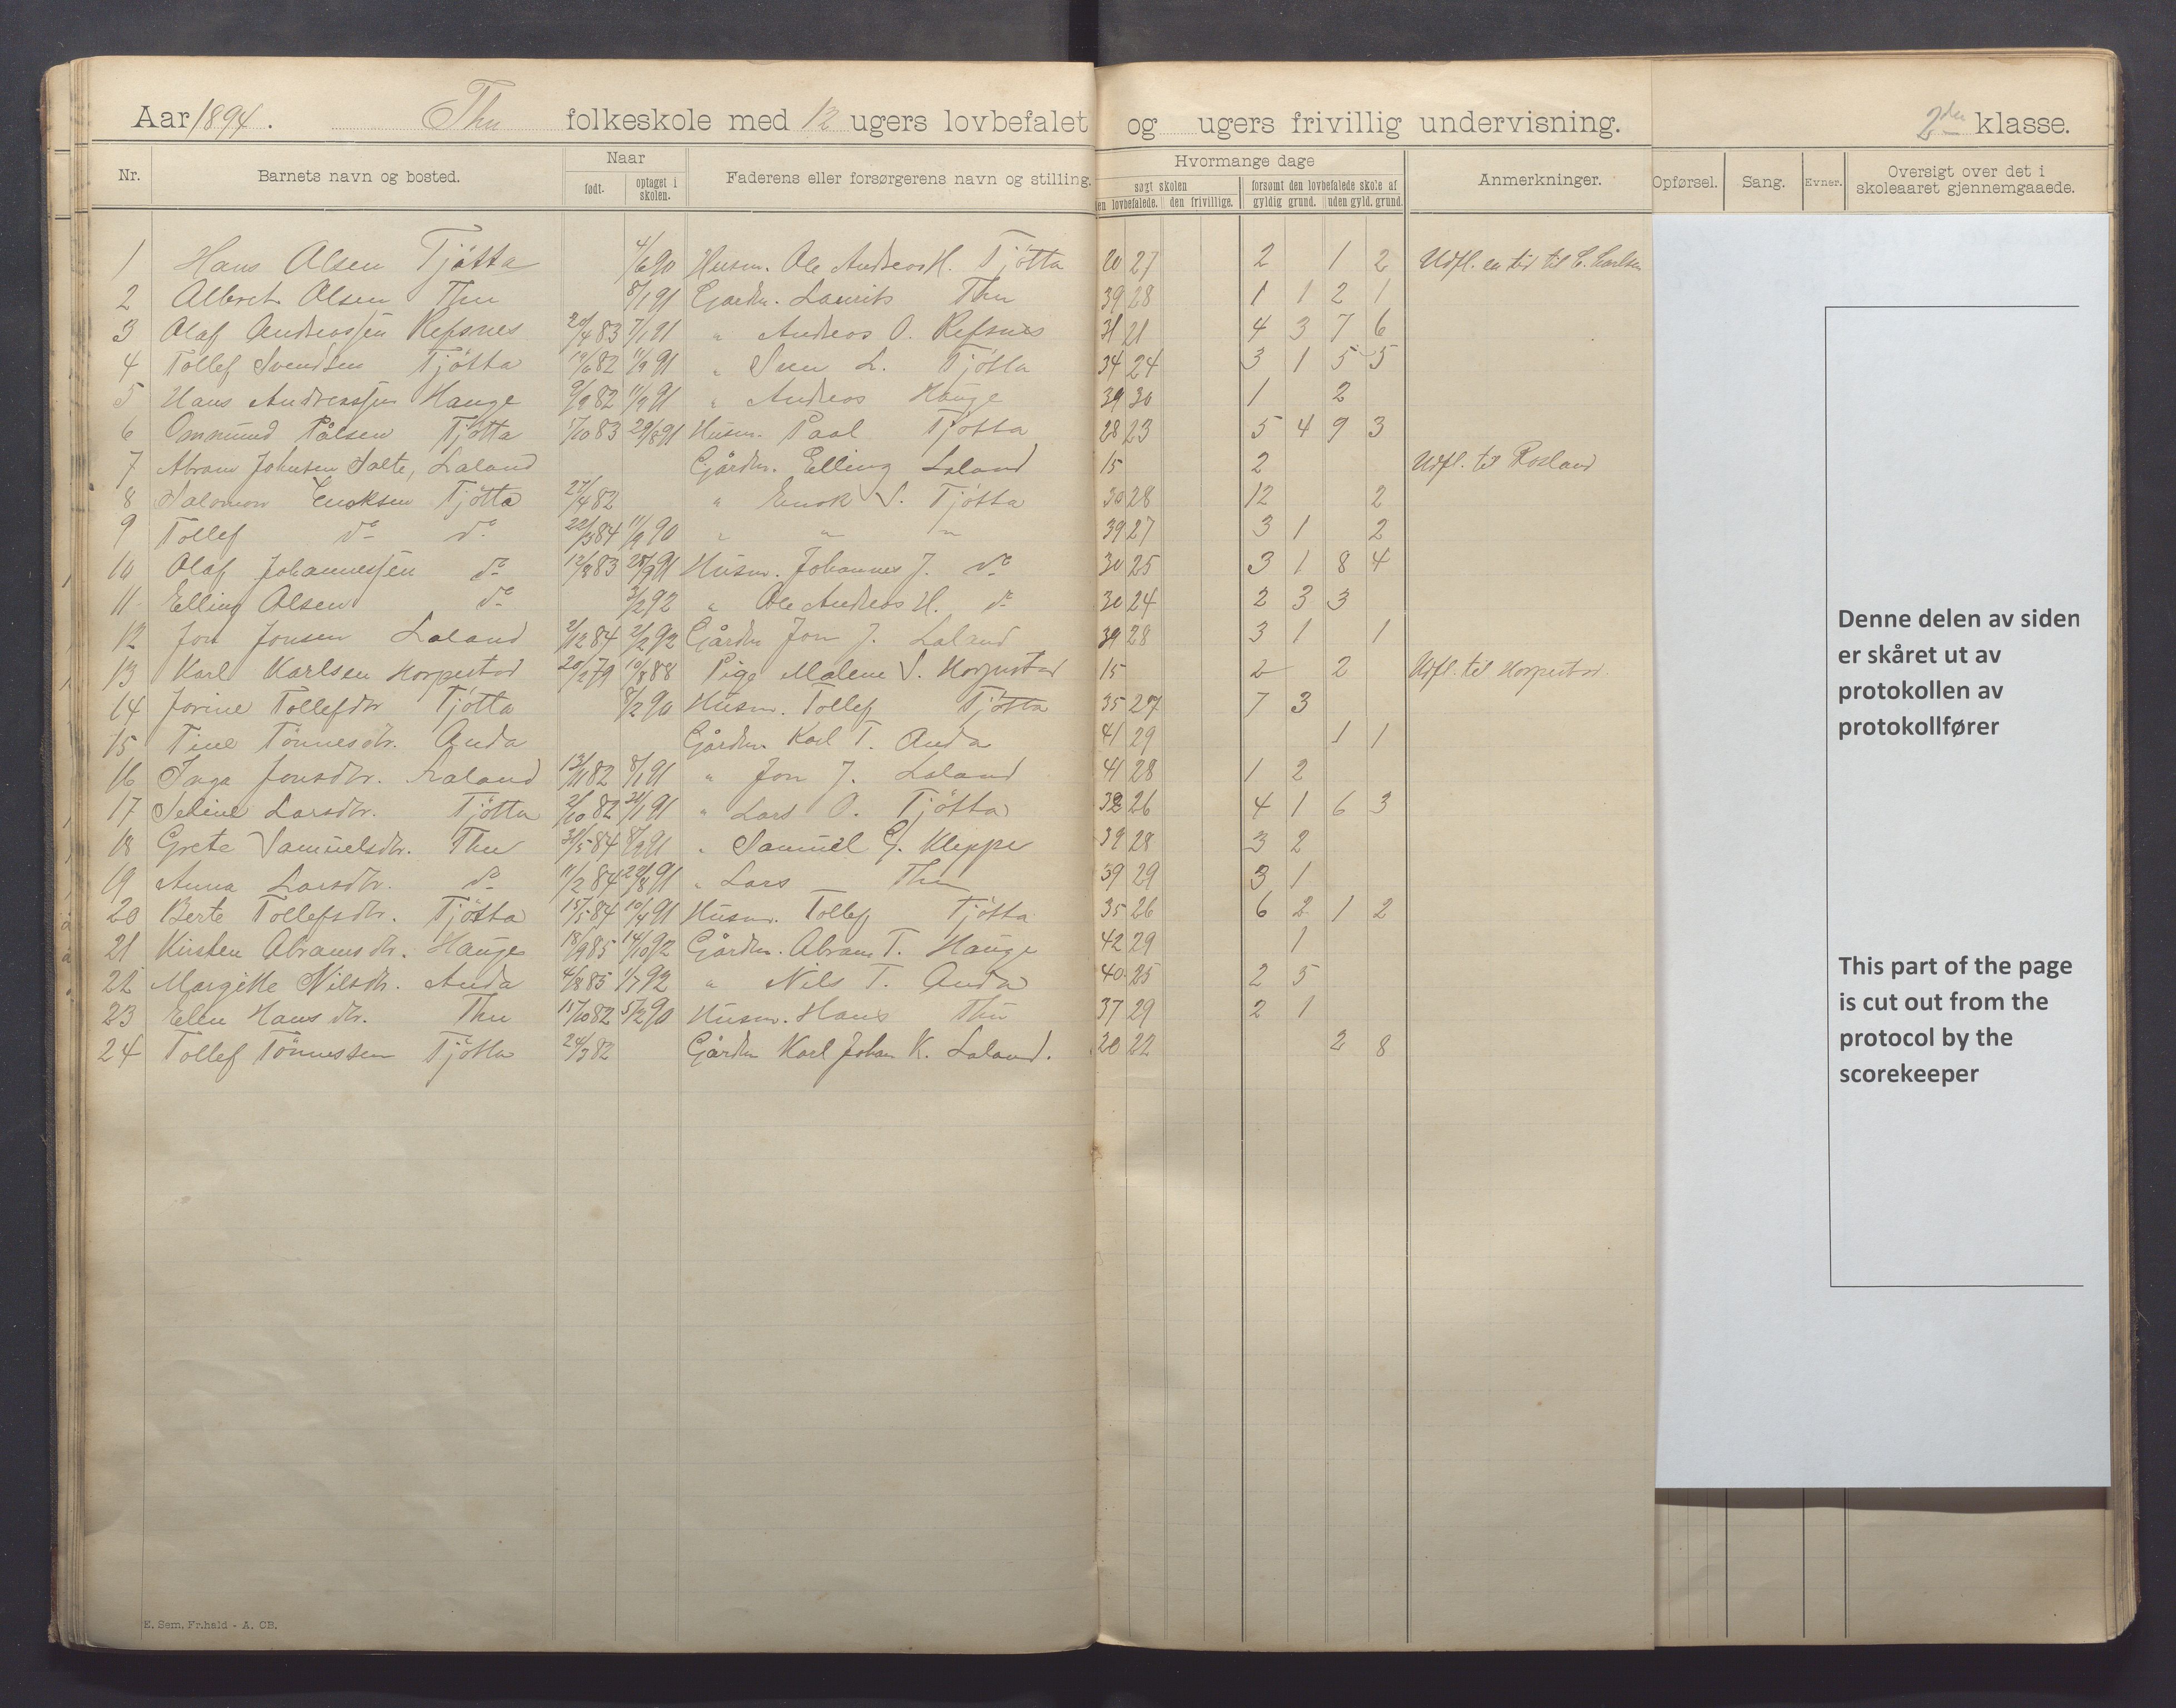 Aar 1894. Thu folkeskole med 12 ugers lovbefalet og ugers frivillig undervisning. 2den klasse.
Nr. Barnets navn og bosted. Naar født. optaget i skolen. Faderens eller forsørgerens navn og stilling. Hvormange dage søgt skolen den lovbefalede. den frivillige. forsømt den lovbefalede skole af gyldig grund. uden gyld. grund. Anmerkninger. Opførsel. Sang. Evner. Oversigt over det i skoleaaret gjennemgaaede.
1 Hans Olsen Tjøtta 4/6 90 Husm. Ole Andreas H. Tjøtta 20 27 2 1 2 Udfl. en tid til
2 Albert Olsen Thu 8/1 91 Gardm. Laurits Thu 39 28 1 1 2 1
3 Olaf Andreassen Refsnes /4 83 7/1 91 " Andreas O. Refsnes 31 21 4 3 7 6
4 Tollef Svendsen Tjøtta 19/6 82 11/9 91 " Sven L. Tjøtta 34 24 3 1 5 5
5 Hans Andreassen Hauge 9/9 82 11/9 91 " Andreas Hauge 39 30 1 2
6 Ommund Pålsen Tjøtta 5/10 83 29/8 91 Husm. Paal Tjøtta 28 23 5 4 9 3
7 Abram Johnsen Salte, Laland Gårdm. Elling Laland 15 2 Udfl. til Rosland
8 Salomon Enoksen Tjøtta 27/4 82 " Enok S. Tjøtta 30 28 12 2
9 Tollef do do 22/3 84 11/9 90 " " " 39 27 3 1 2
10 Olaf Johannessen do 12/8 83 28/9 91 Husm. Johannes J. do 30 25 3 1 8 4
11 Elling Olsen do 3/2 92 " Ole Andreas H. do 30 24 2 3 3
12 Jon Jonsen Laland 2/12 84 2/2 92 Gårdm Jon J. Laland 39 28 3 1 1
13 Karl Karlsen Horpestad 20/2 79 10/8 88 Pige Malene S. Horpestad 15 2 2 Udfl. til Horpestad.
14 Jorine Tollefdtr Tjøtta 8/2 90 Husm. Tollef Tjøtta 35 27 7 3
15 Tine Tönnesdtr. Anda Gårdm. Karl T. Anda 41 29 1 1
16 Inga Jonsdtr. Laland 13/11 82 8/1 91 " Jon J. Laland 41 28 1 2
17 Seline Larsdtr. Tjøtta 2/10 82 21/1 91 " Lars O. Tjøtta 32 26 4 1 6 3
18 Grete Samuelsdtr. Thu 31/5 84 8/9 91 " Samuel G. Kleppe 39 28 3 2
19 Anna Larsdtr. do 11/2 84 22/8 91 " Lars Thu 39 29 3 1
20 Berte Tollefsdtr. Tjøtta 15/5 84 10/4 91 Husm. Tollef Tjøtta 35 26 6 2 1 2
21 Kirsten Abramsdtr. Hauge 18/9 85 14/10 92 Gårdm. Abram T. Hauge 42 29 1
22 Margitte Nilsdtr. Anda 4/8 85 1/7 92 " Nils T. Anda 40 25 2 5
23 Elen Hansdtr. Thu 17/10 82 5/2 90 Husm. Hans Thu 37 29 2 1
24 Tollef Tönnessen Tjøtta 24/3 82 Gårdm Karl Johan K. Laland. 20 22 2 8
Denne delen av siden
er skåret ut av
protokollen av
protokollfører
This part of the page
is cut out from the
protocol by the
scorekeeper
E. Sem, Fr.hald - A. CB.